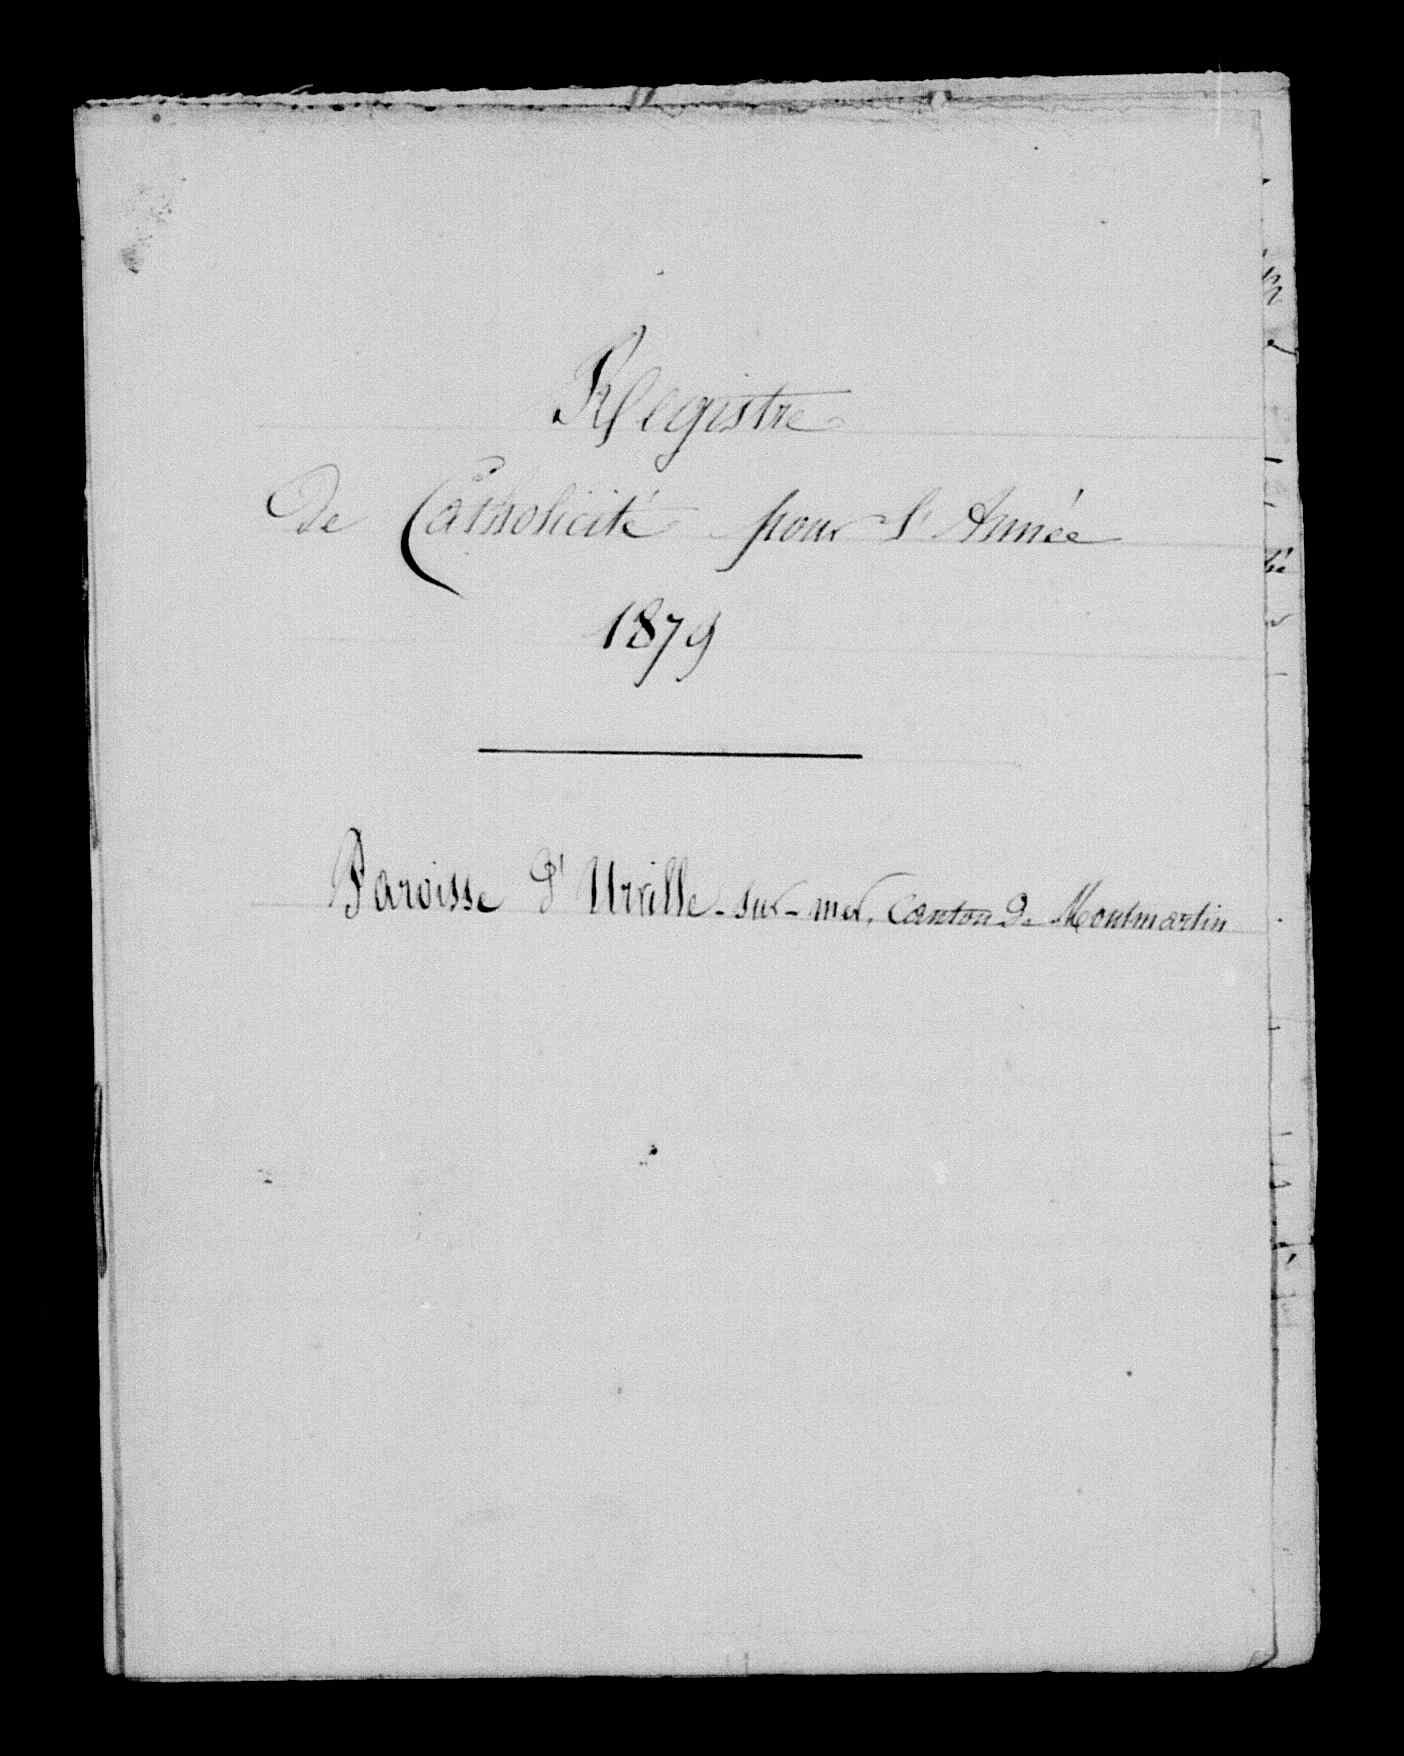 Registre
De Catholicité pour l'Année
1879
Paroisse d'Urville-sur-mer, Canton De Montmartin